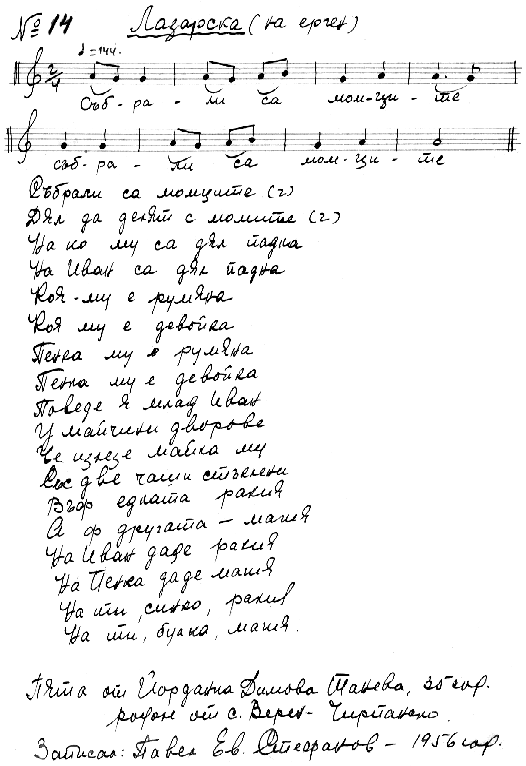 № 14 Лазарска (на ерген)
♩=144.
2/4
Съб - ра - ли са мом - ци - те
съб - ра - ли са мом - ци - те
Събрали са момците (2)
Дял да делят с момите (2)
На ко му са дял падна
На Иван са дял падна
Коя - му е румяна
Коя му е девойка
Пенка му е румяна
Пенка му е девойка
Поведе я млад Иван
У майчини дворове
Че излезе майка му
Със две чаши стъклени
Въф едната ракия
А ф другата - магия
На Иван даде ракия
На Пенка даде магия
На ти, синко, ракия
На ти, булка, магия.
Пята от Йорданка Димова Танева, 35 год.
родом от с. Верен - Чирпанско.
Записал: Павел Ев. Стефанов - 1956 год.